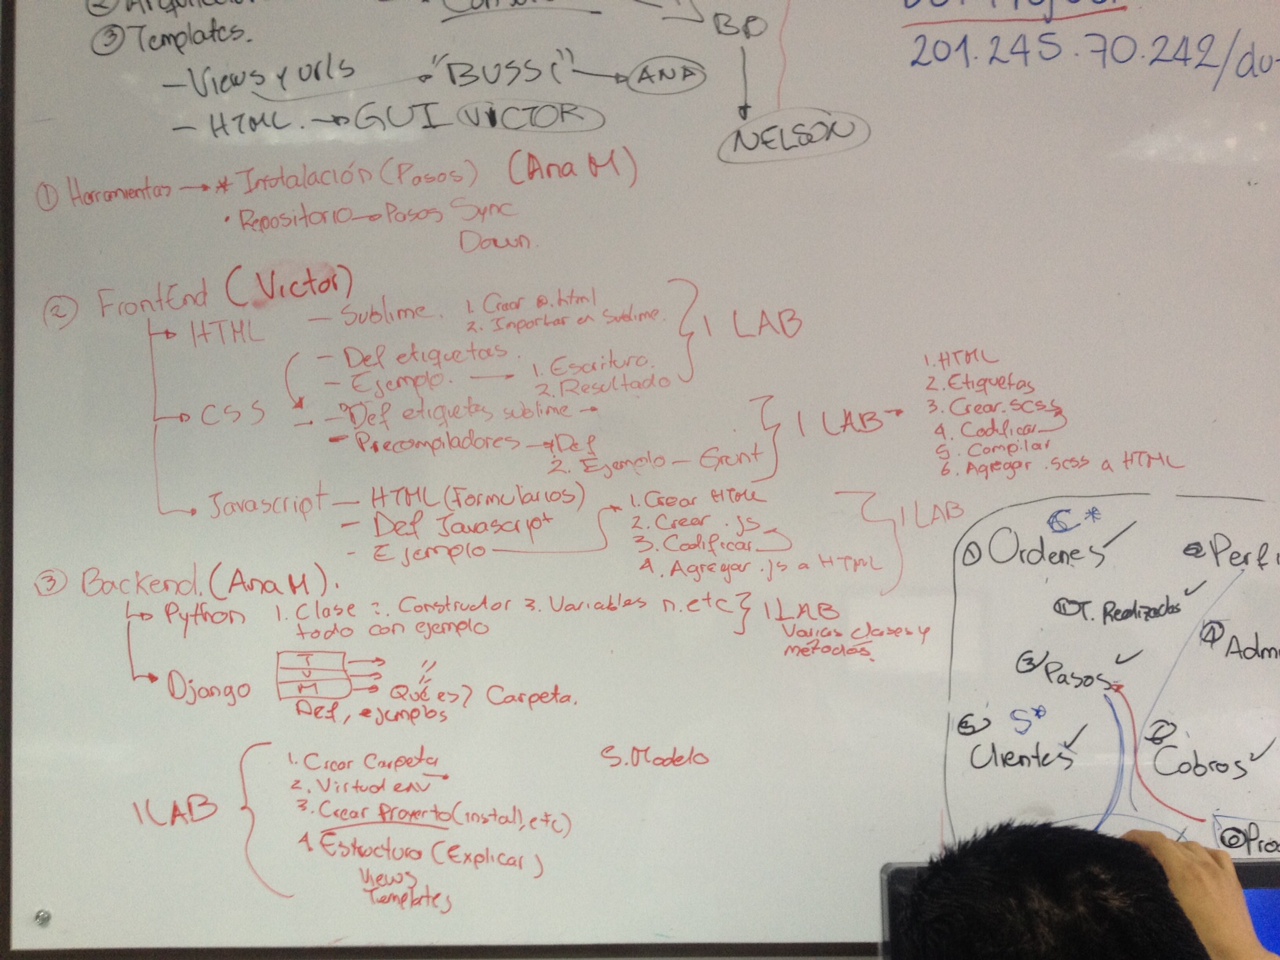 ③ Templates.
BD
201.245.70.242/do-
- Views y urls → "BUSSi" → ANA
- HTML. → GUI VICTOR
NELSON
① Herramientas → * Instalación (Pasos) (Ana M)
• Repositorio → Pasos Sync
Down.
② FrontEnd (Victor)
HTML - Sublime. 1. Crear .html
2. Importar en Sublime.
1 LAB
- Def etiquetas.
- Ejemplo. → 1. Escritura.
2. Resultado
CSS - Def etiquetas sublime
- Precompiladores → Def
2. Ejemplo - Grunt
1 LAB →
1. HTML
2. Etiquetas
3. Crear .scss
4. Codificar
5. Compilar
6. Agregar .scss a HTML
Javascript - HTML (Formularios)
- Def Javascript
- Ejemplo
1. Crear HTML
2. Crear .js
3. Codificar
4. Agregar .js a HTML
1 LAB
③ Backend. (Ana M).
Python 1. Clase 2. Constructor 3. Variables n. etc
todo con ejemplo
1 LAB
Varias clases y
métodos.
Django
T
V
M
Qué es? Carpeta.
Def, ejemplos
1 LAB
1. Crear Carpeta
2. Virtual env
3. Crear Proyecto (install, etc)
4. Estructura (Explicar)
Views
Templates
5. Modelo
C *
① Ordenes ✓
② Perfi
① T. Realizados ✓
④ Adm
③ Pasos ✓
S*
⑤ Clientes ✓
⑦ Cobros ✓
⑥ Pro